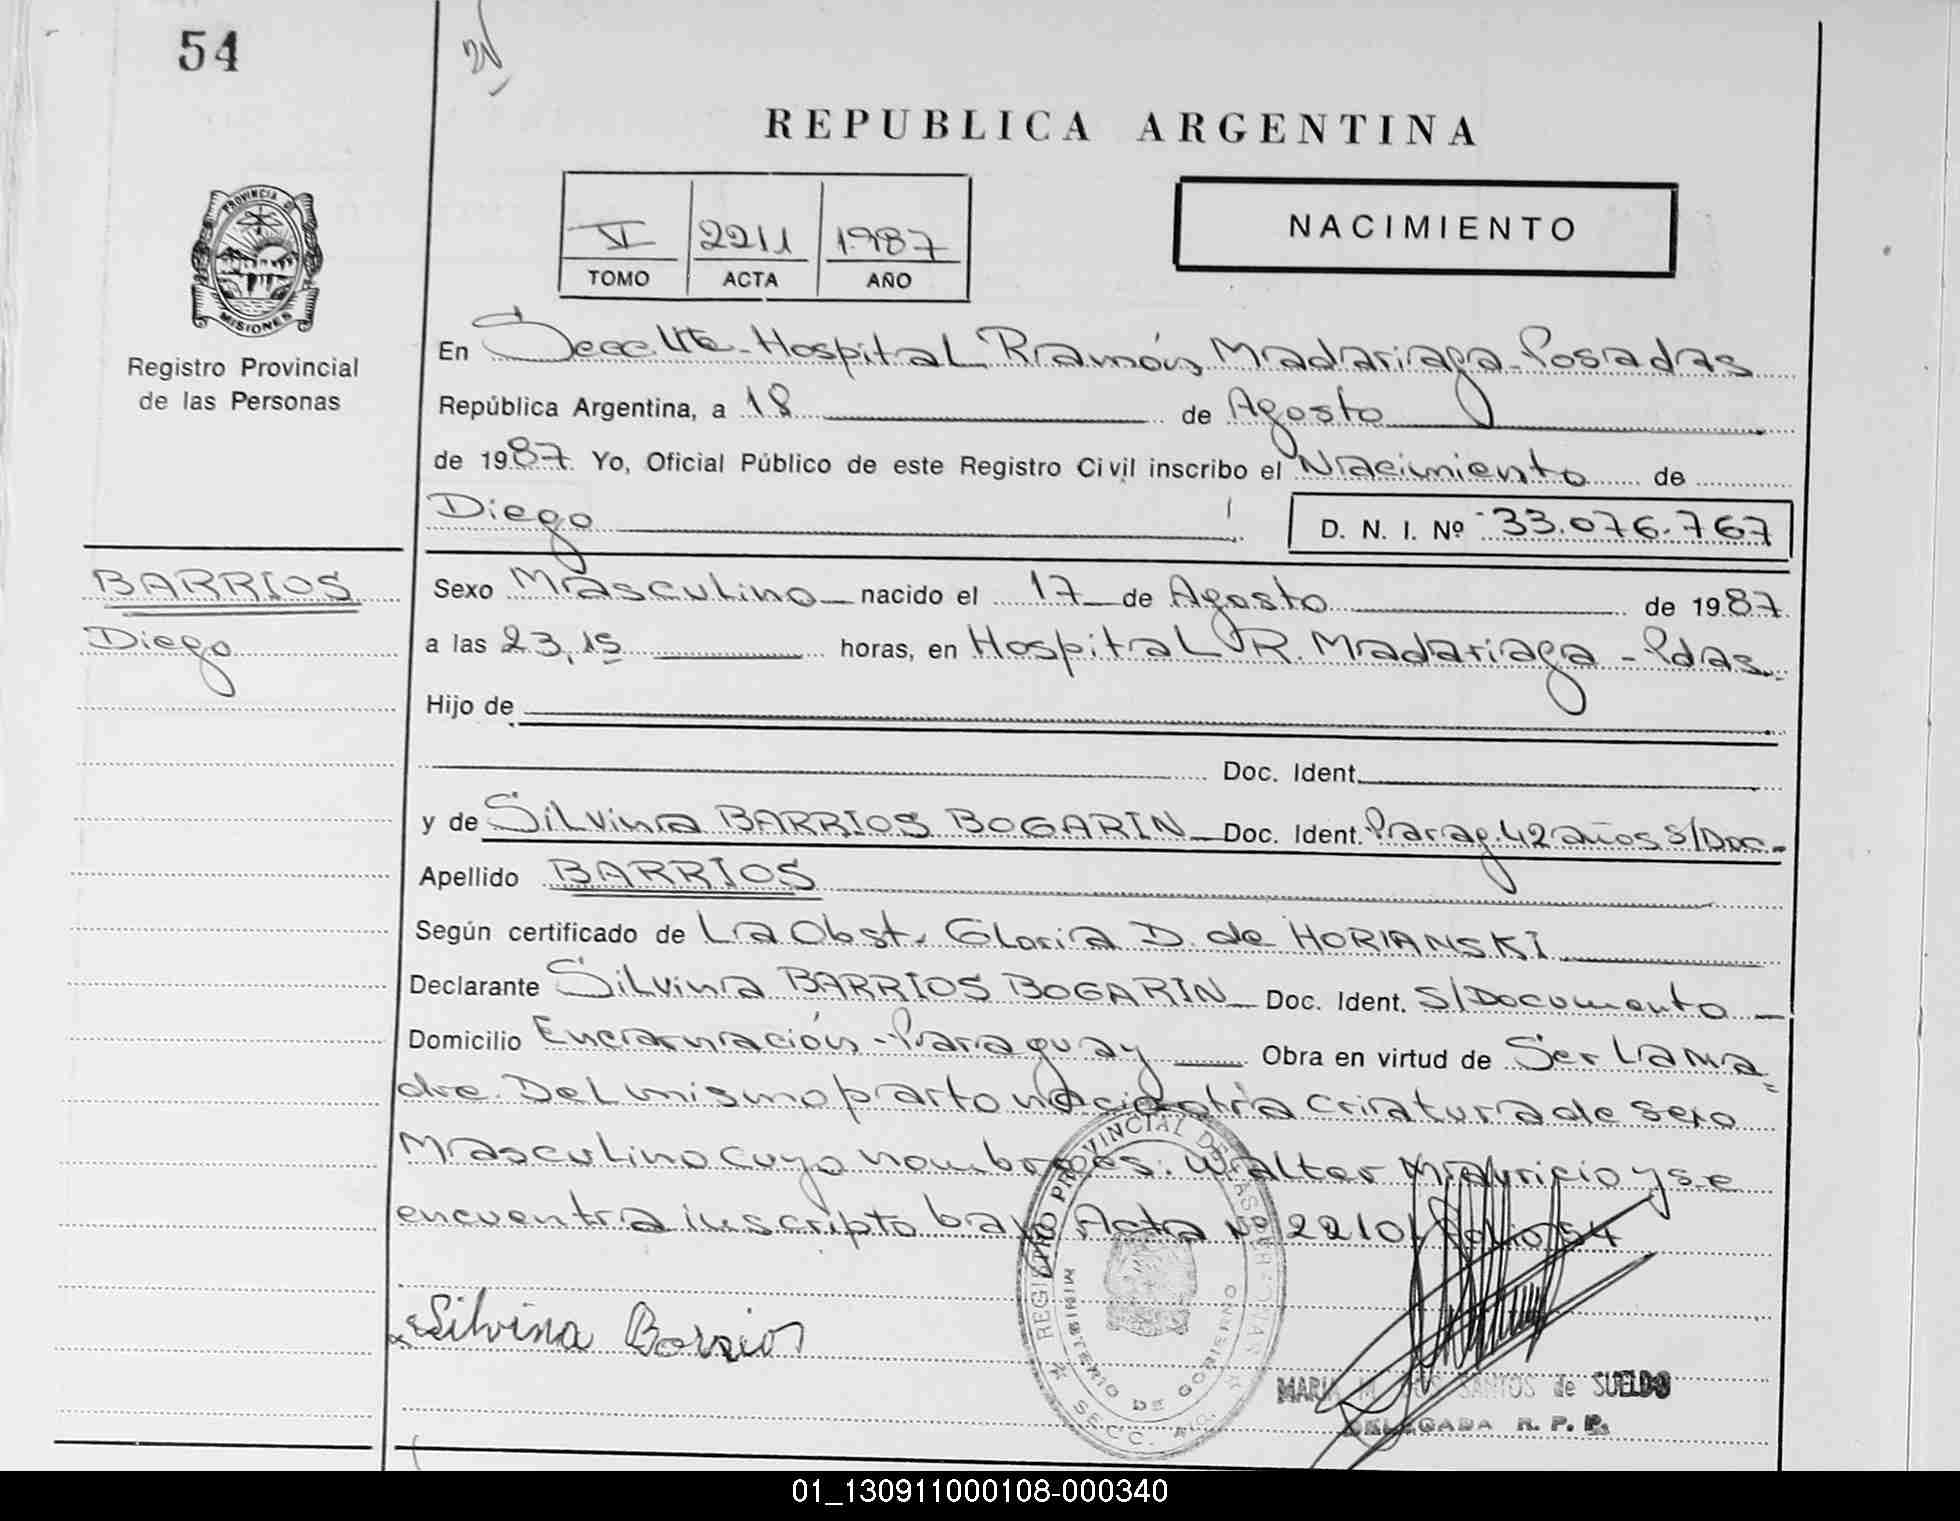 54
REPUBLICA ARGENTINA
PROVINCIA DE
MISIONES
Registro Provincial
de las Personas
VI 2211 1987
TOMO ACTA AÑO
NACIMIENTO
En Secc. 4ta - Hospital Ramón Madariaga - Posadas
República Argentina, a 18 de Agosto
de 1987. Yo, Oficial Público de este Registro Civil inscribo el Nacimiento de
Diego D. N. I. Nº 33.076.767
BARRIOS
Diego
Sexo Masculino nacido el 17 de Agosto de 1987.
a las 23,15 horas, en Hospital R. Madariaga - Pdas.
Hijo de
Doc. Ident.
y de Silvina BARRIOS BOGARIN Doc. Ident. Parag. 42 años S/Doc.-
Apellido BARRIOS
Según certificado de La Obst. Gloria D. de HORIANSKI
Declarante Silvina BARRIOS BOGARIN Doc. Ident. S/Documento
Domicilio Encarnación - Paraguay Obra en virtud de Ser La Ma=
dre. Del mismo parto nació otra criatura de sexo
Masculino cuyo nombre es: Walter Mauricio y se
encuentra inscripto bajo Acta Nº 2210 Folio 54
Silvina Barrios
REGISTRO PROVINCIAL DE LAS PERSONAS
MINISTERIO DE GOBIERNO
SECC.
MARIA M. DOS SANTOS de SUELDO
DELEGADA R. P. P.
01_130911000108-000340